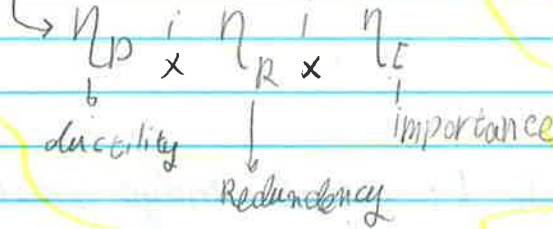 → η_D × η_R × η_I
ductility
importance
Redundency